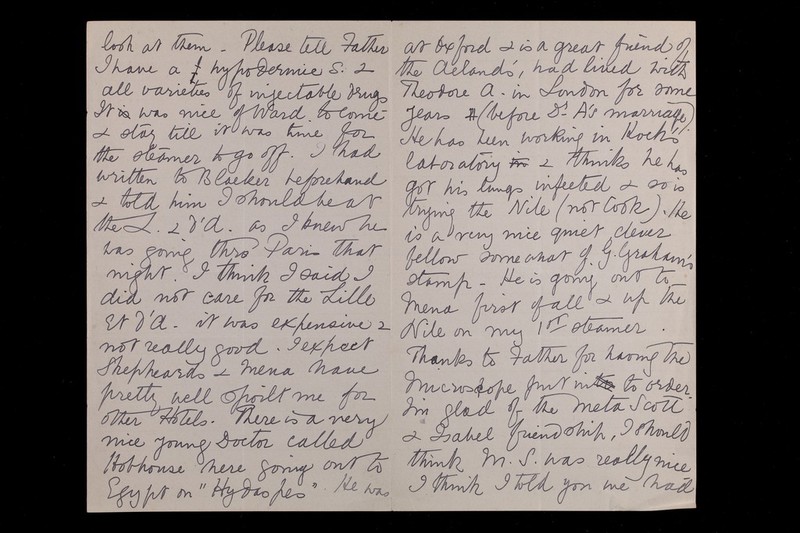 look at them - Please tell Father
I have a hypodermic S. &
all varieties of injectable drugs
It is was nice of Ward. to come
& stay till it was time for
the steamer to go off. I had
written to Blacker beforehand
& told him I should be at
the L. & d'A. as I knew he
was going thro' Paris that
night. I think I said I
did not care for the Lille
Et d'A - it was expensive &
not really good. I expect
Shepheards & Mena have
pretty well spoilt me for
other Hotels. There is a very
nice young Doctor called
Hobhouse here going out to
Egypt on "Hydaspes". He was
at Oxford & is a great friend of
the Aclands', had lived with
Theodore A. in London for some
years (before Dr A's marriage)
He has been working in Koch's
laboratory & thinks he has
got his lungs infected & so is
trying the Nile (not Cook). He
is a very nice quiet clever
fellow somewhat of G. Graham's
stamp - He is going out to
Mena first of all & up the
Nile on my 1st steamer.
Thanks to Father for having the
microscope put in to order.
I'm glad of the Meta Scott
& Isabel friendship, I should
think M. S. was really nice
I think I told you we had